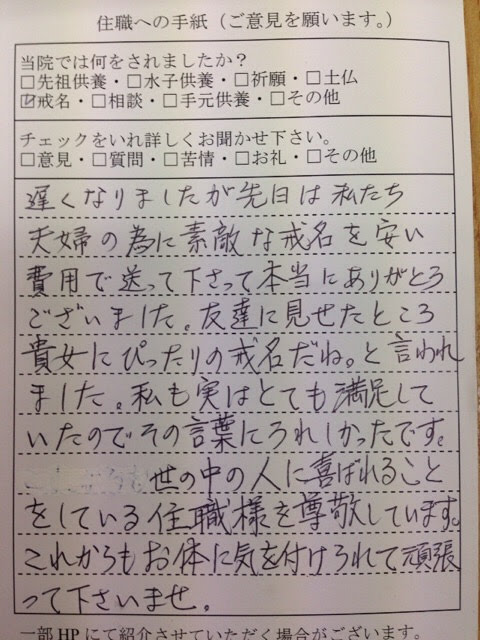 住職への手紙（ご意見を願います。）
当院では何をされましたか？
□先祖供養・□水子供養・□祈願・□土仏
☑戒名・□相談・□手元供養・□その他
チェックをいれ詳しくお聞かせ下さい。
□意見・□質問・□苦情・□お礼・□その他
遅くなりましたが先日は私たち
夫婦の為に素敵な戒名を安い
費用で送って下さって本当にありがとう
ございました。友達に見せたところ
貴女にぴったりの戒名だね。と言われ
ました。私も実はとても満足して
いたのでその言葉にうれしかったです。
世の中の人に喜ばれること
をしている住職様を尊敬しています。
これからもお体に気を付けられて頑張
って下さいませ。
一部HPにて紹介させていただく場合がございます。